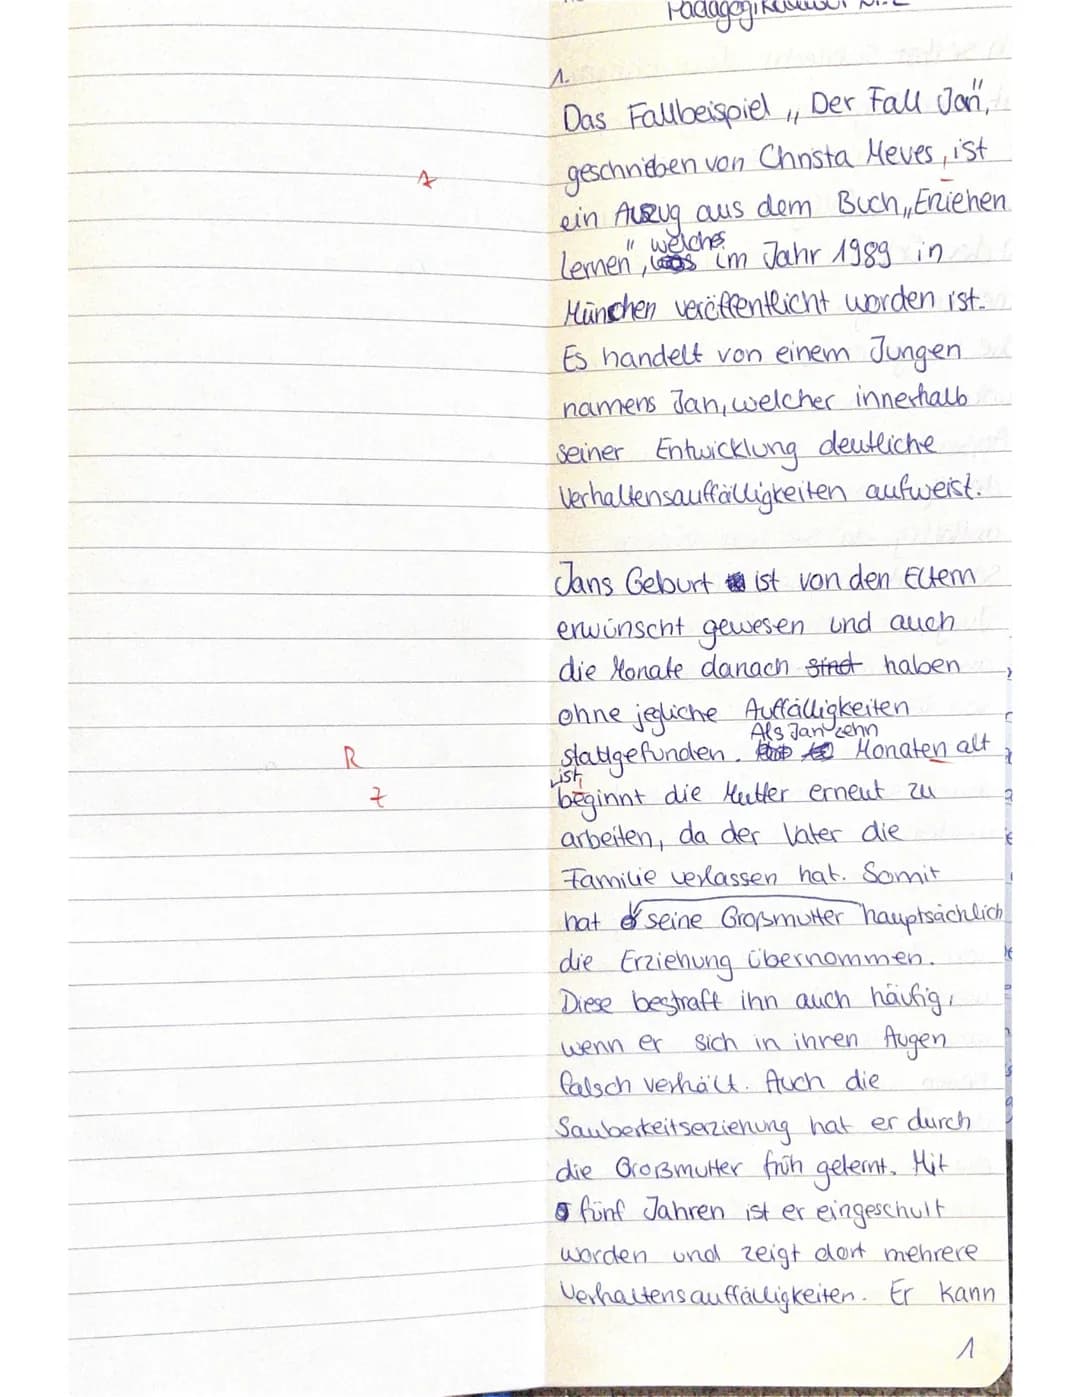 Pädagogikklausur Nr. 2
1.
Das Fallbeispiel „Der Fall Jan",
geschrieben von Christa Meves, ist
A
ein Auszug aus dem Buch „Erziehen
lernen", welches im Jahr 1989 in
München veröffentlicht worden ist.
Es handelt von einem Jungen
namens Jan, welcher innerhalb
seiner Entwicklung deutliche
Verhaltensauffälligkeiten aufweist.
Jans Geburt ist von den Eltern
erwünscht gewesen und auch
die Monate danach sind haben
ohne jegliche Auffälligkeiten
stattgefunden. Als Jan zehn Monaten alt
R
ist, beginnt die Mutter erneut zu
z
arbeiten, da der Vater die
Familie verlassen hat. Somit
hat seine Großmutter hauptsächlich
die Erziehung übernommen.
Diese bestraft ihn auch häufig,
wenn er sich in ihren Augen
falsch verhält. Auch die
Sauberkeitserziehung hat er durch
die Großmutter früh gelernt. Mit
fünf Jahren ist er eingeschult
worden und zeigt dort mehrere
Verhaltensauffälligkeiten. Er kann
1